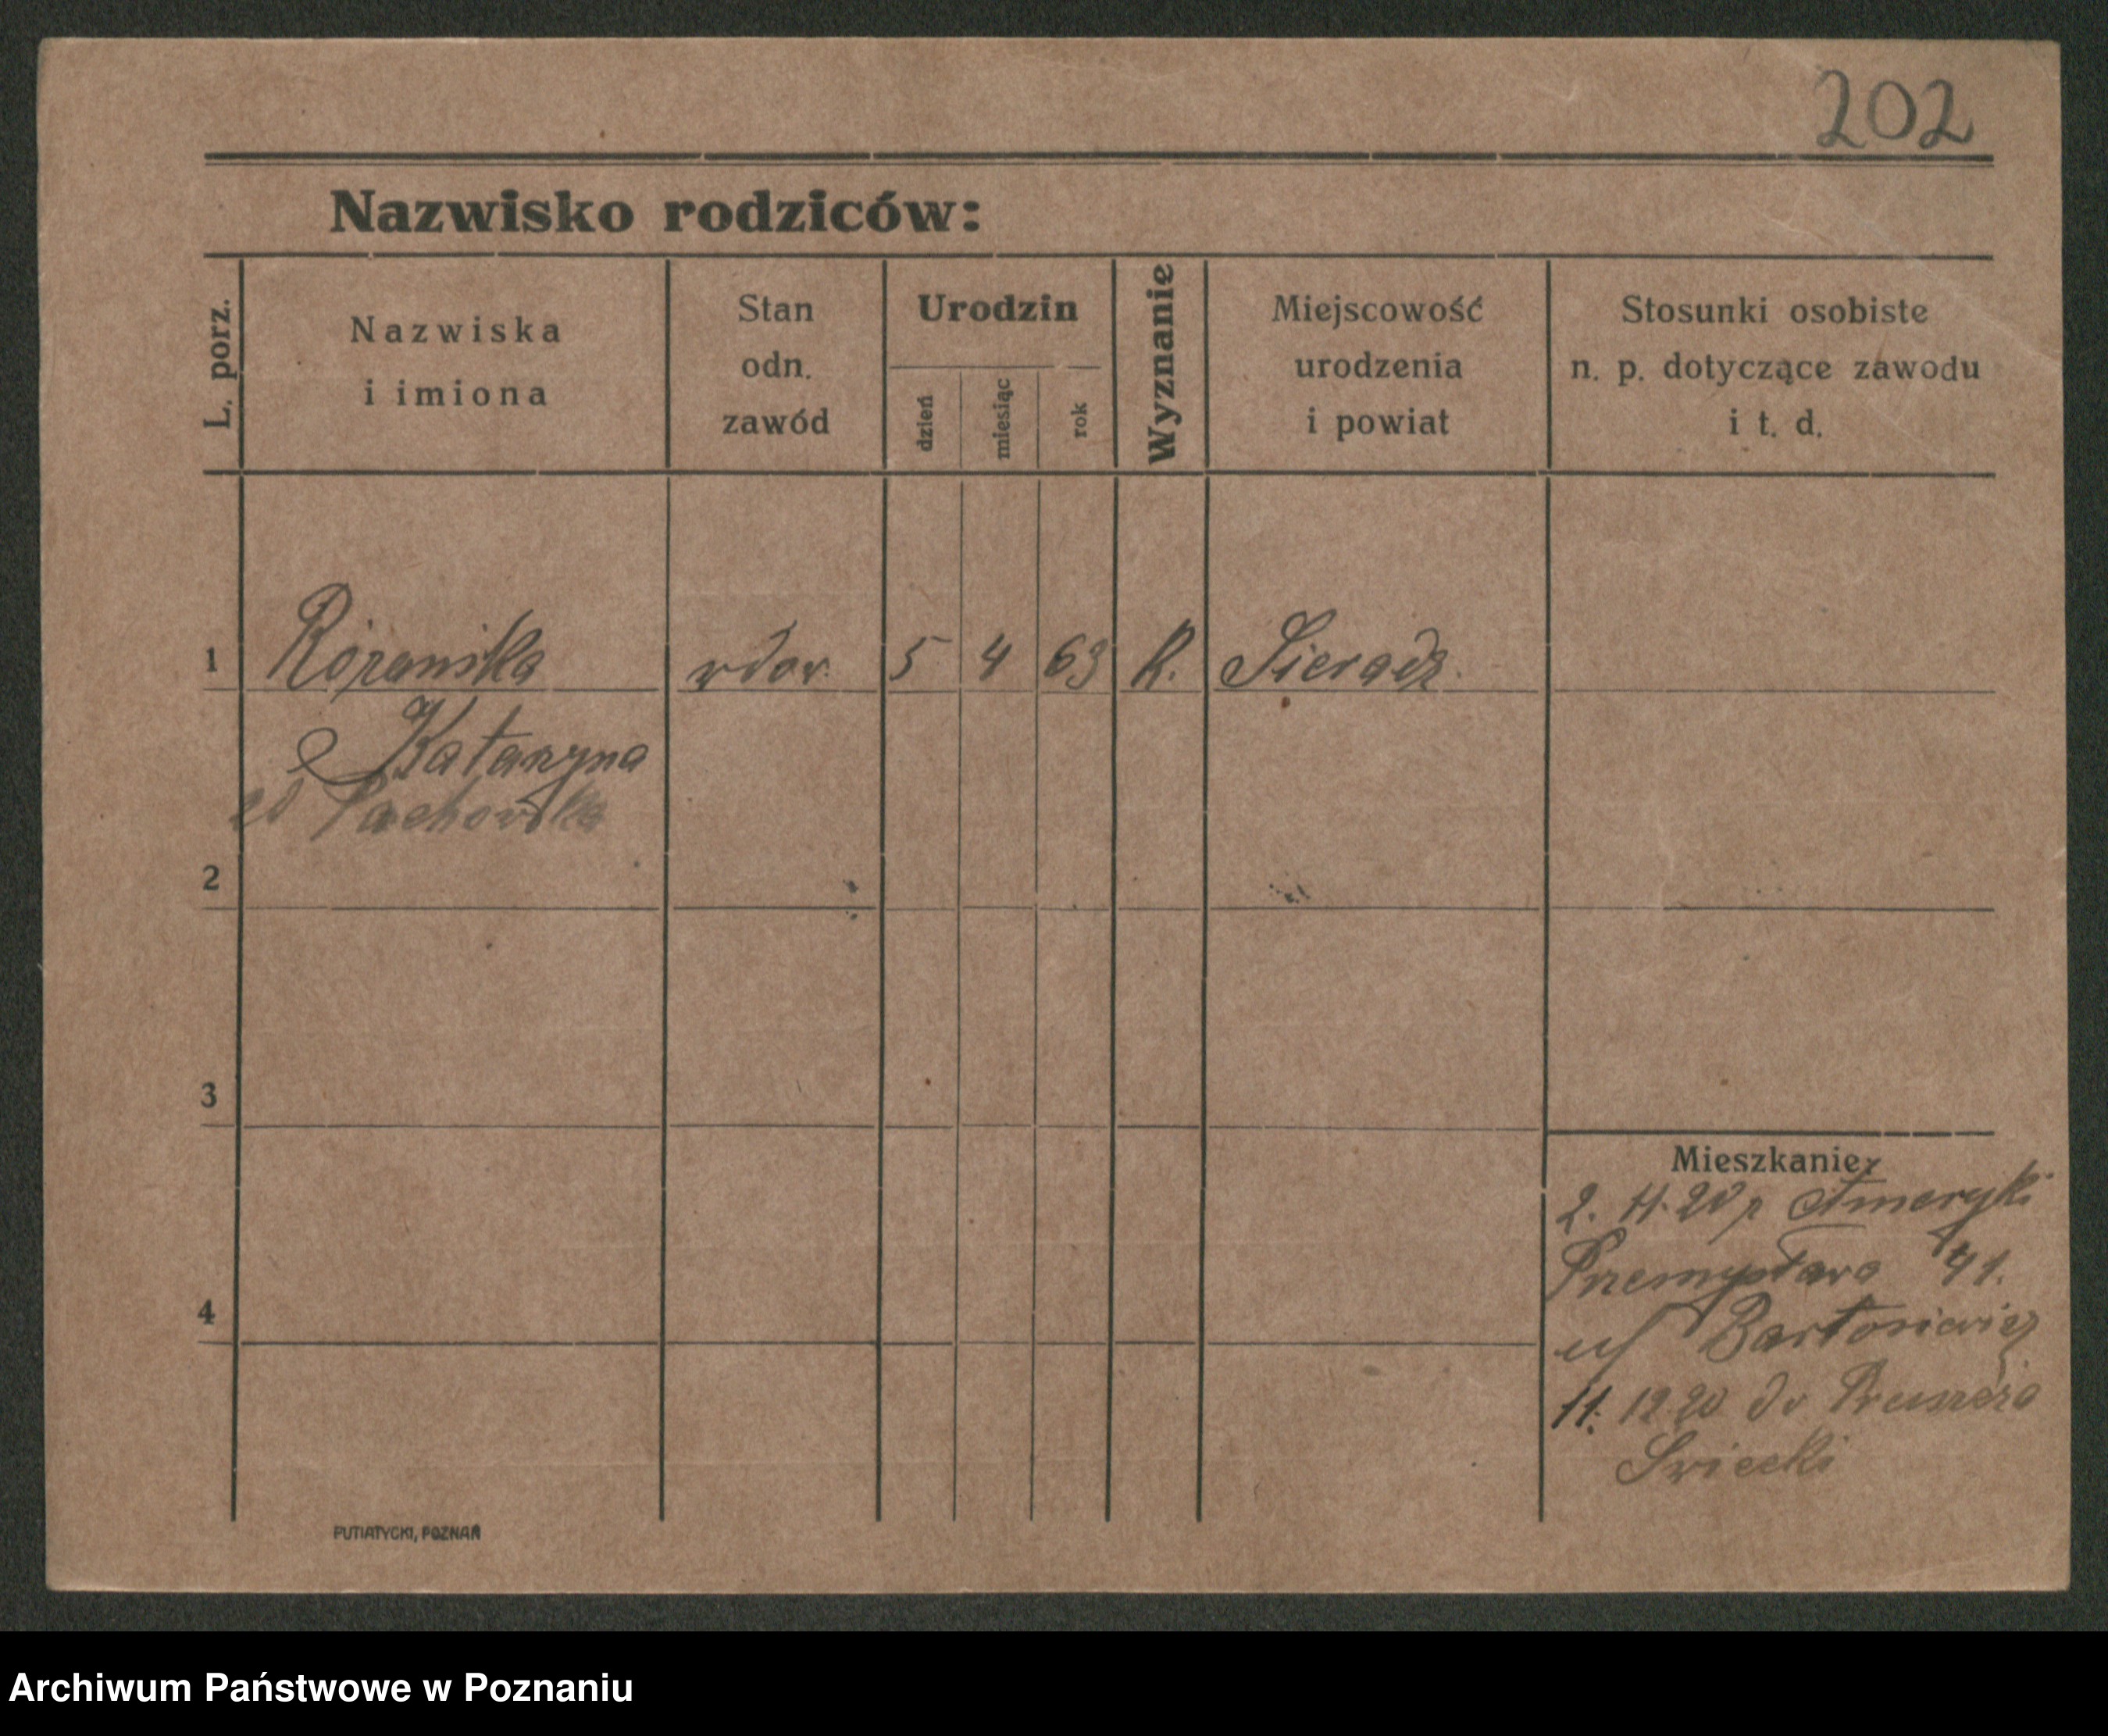 202
Nazwisko rodziców:
L. porz.
Nazwiska
i imiona
Stan
odn.
zawód
Urodzin
dzień
miesiąc
rok
Wyznanie
Miejscowość
urodzenia
i powiat
Stosunki osobiste
n. p. dotyczące zawodu
i t. d.
1 Różańska wdow. 5 4 63 K. Sieradz.
Katarzyna
2
3
4
Mieszkanie:
2. 11. 20 z Ameryki
Przemysława 41.
u/ Bartosiewicz
11. 12 20 do
Swiecki
PUTIATYCKI, POZNAŃ
Archiwum Państwowe w Poznaniu